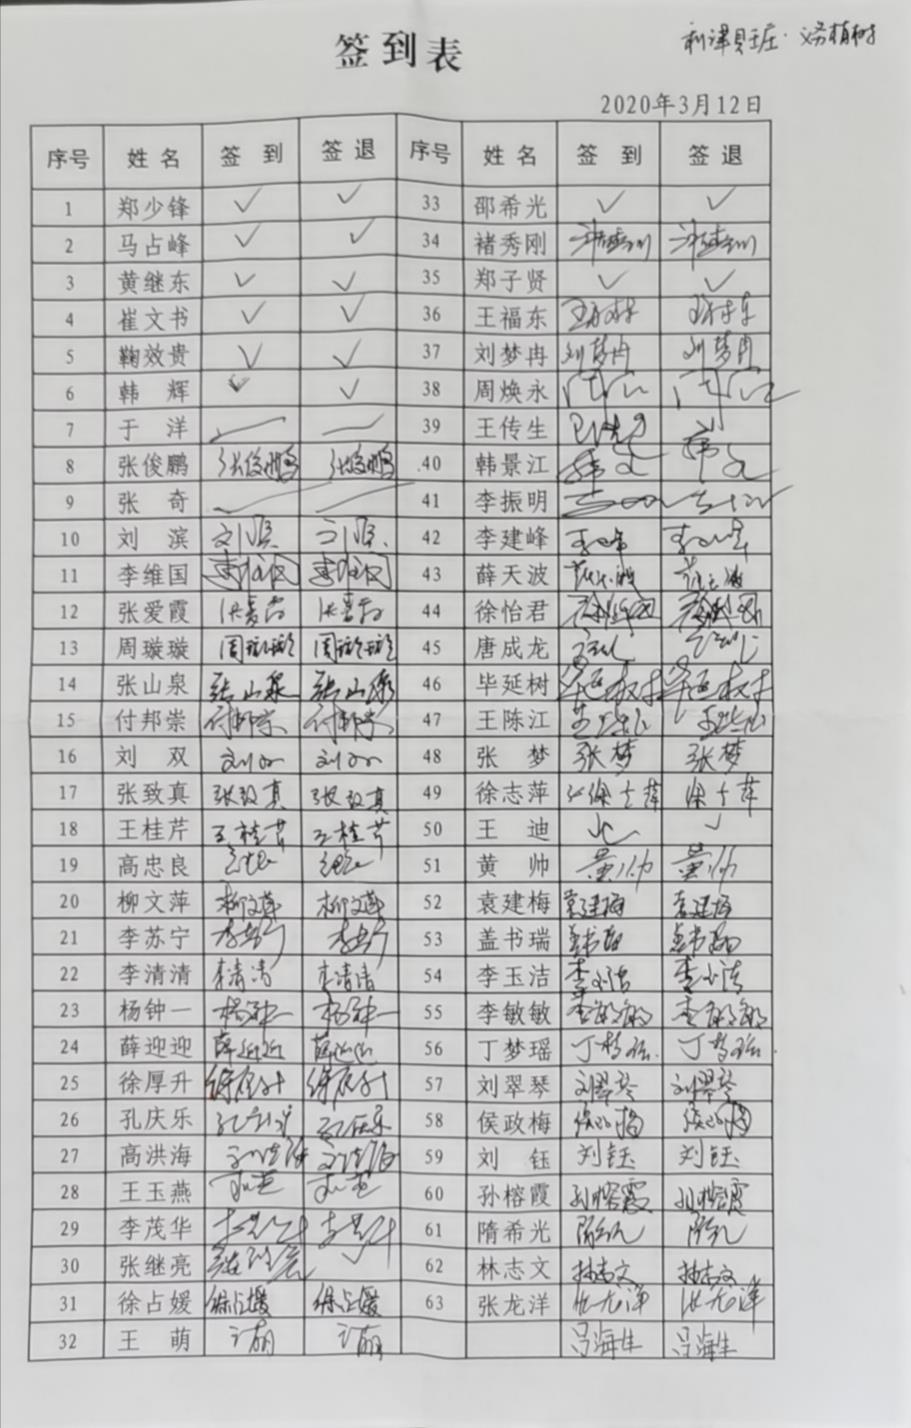 签到表
义务植树
2020年3月12日
序号 姓名 签到 签退 序号 姓名 签到 签退
1 郑少锋 ✓ ✓ 33 邵希光 ✓ ✓
2 马占峰 ✓ ✓ 34 褚秀刚
3 黄继东 ✓ ✓ 35 郑子贤 ✓ ✓
4 崔文书 ✓ ✓ 36 王福东
5 鞠效贵 ✓ ✓ 37 刘梦冉 刘梦冉 刘梦冉
6 韩辉 ✓ ✓ 38 周焕永
7 于洋 39 王传生
8 张俊鹏 张俊鹏 张俊鹏 40 韩景江
9 张奇 41 李振明
10 刘滨 42 李建峰
11 李维国 李维国 李维国 43 薛天波
12 张爱霞 44 徐怡君
13 周璇璇 周璇璇 周璇璇 45 唐成龙
14 张山泉 张山泉 张山泉 46 毕延树 毕延树 毕延树
15 付邦崇 付邦崇 付邦崇 47 王陈江
16 刘双 刘双 刘双 48 张梦 张梦 张梦
17 张致真 张致真 张致真 49 徐志萍 徐志萍 徐志萍
18 王桂芹 王桂芹 王桂芹 50 王迪 ✓
19 高忠良 51 黄帅 黄帅 黄帅
20 柳文萍 柳文萍 柳文萍 52 袁建梅 袁建梅 袁建梅
21 李苏宁 李苏宁 李苏宁 53 盖书瑞 盖书瑞 盖书瑞
22 李清清 李清清 李清清 54 李玉洁 李玉洁 李玉洁
23 杨钟一 杨钟一 杨钟一 55 李敏敏 李敏敏 李敏敏
24 薛迎迎 薛迎迎 薛迎迎 56 丁梦瑶 丁梦瑶 丁梦瑶
25 徐厚升 徐厚升 徐厚升 57 刘翠琴 刘翠琴 刘翠琴
26 孔庆乐 孔庆乐 孔庆乐 58 侯政梅 侯政梅 侯政梅
27 高洪海 59 刘钰 刘钰 刘钰
28 王玉燕 60 孙榕霞 孙榕霞 孙榕霞
29 李茂华 61 隋希光
30 张继亮 ✓ 62 林志文 林志文 林志文
31 徐占媛 徐占媛 徐占媛 63 张龙洋 张龙洋 张龙洋
32 王萌 王萌 王萌 吕海生 吕海生